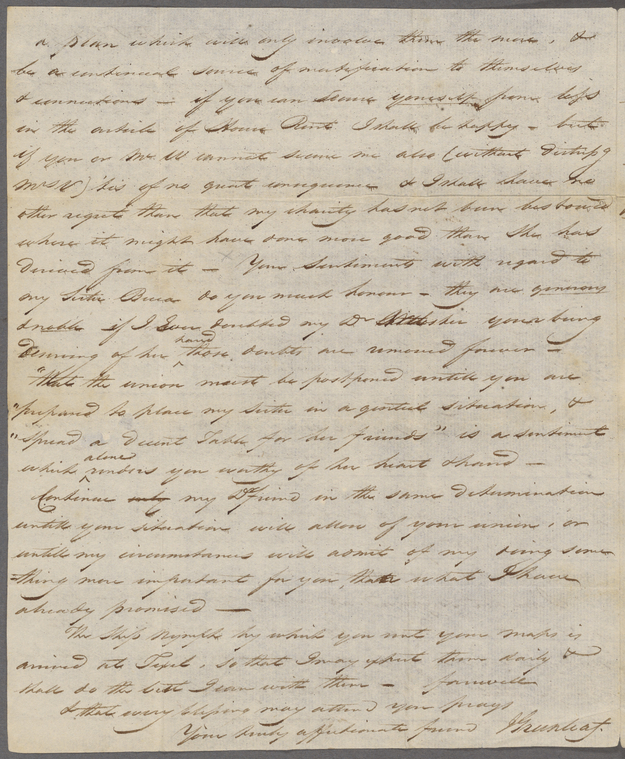 a plan which will only involve them the more, &
be a continual source of mortification to themselves
& connections — if you can secure yourself from loss
in the article of House Rent I shall be happy — but
if you or Mr W cannot secure me also (without distressg
Mrs W) 'tis of no great consequence & I shall have no
other regret than that my charity has not been bestowed
where it might have done more good than she has
derived from it — Your sentiments with regard to
my sister Becca do you much honour — they are generous
& noble if I Ever doubted my Dr your being
deserving of her hand those doubts are removed forever —
"that the union must be postponed untill you are
"prepared to place my sister in a genteel situation, &
"spread a Decent Table for her friends" is a sentiment
which alone renders you worthy of her heart & hand —
Continue my Dr friend in the same determination
untill your situation will allow of your union, or
untill my circumstances will admit of my doing some
=thing more important for you than what I have
already promised —
The Ship Nymph by which you sent your maps is
arrived at Texel, so that I may expect them daily &
shall do the best I can with them — farewell
& that every blessing may attend you prays
Your truly affectionate friend J Greenleaf.